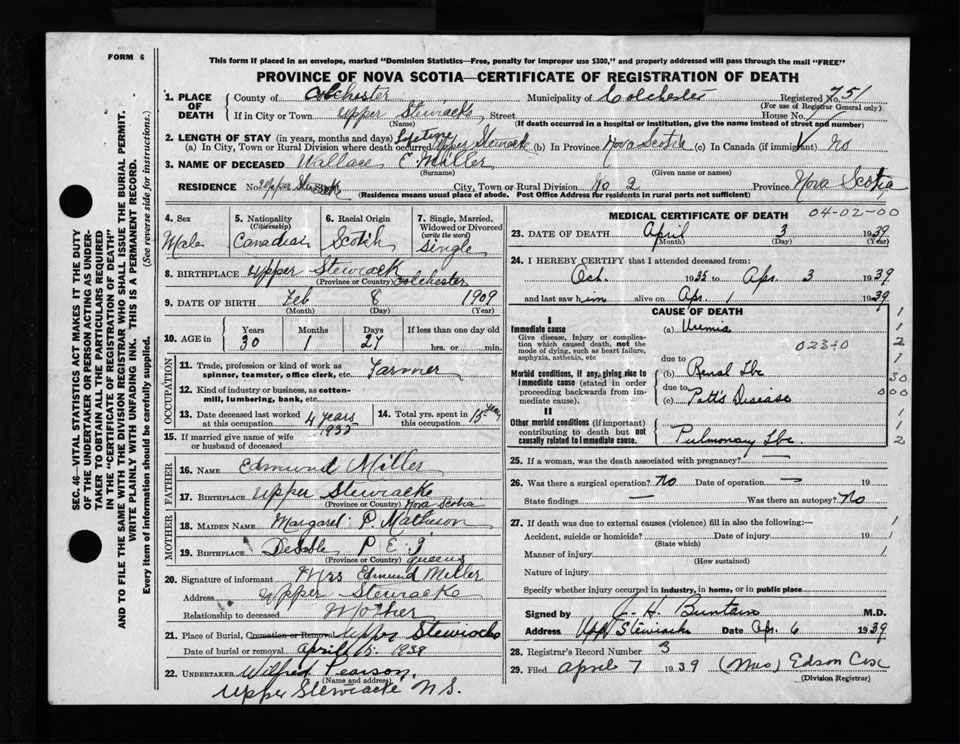 FORM 6
This form if placed in an envelope, marked "Dominion Statistics—Free, penalty for improper use $300," and properly addressed will pass through the mail "FREE"
PROVINCE OF NOVA SCOTIA—CERTIFICATE OF REGISTRATION OF DEATH
SEC. 46—VITAL STATISTICS ACT MAKES IT THE DUTY
OF THE UNDERTAKER OR PERSON ACTING AS UNDER-
TAKER TO OBTAIN ALL THE PARTICULARS REQUIRED
IN THE "CERTIFICATE OF REGISTRATION OF DEATH"
AND TO FILE THE SAME WITH THE DIVISION REGISTRAR WHO SHALL ISSUE THE BURIAL PERMIT.
WRITE PLAINLY WITH UNFADING INK. THIS IS A PERMANENT RECORD.
Every item of information should be carefully supplied. (See reverse side for instructions.)
1. PLACE OF DEATH
County of Colchester Municipality of Colchester Registered No. 751
(For use of Registrar General only)
If in City or Town Upper Stewiacke Street House No.
(Name) (If death occurred in a hospital or institution, give the name instead of street and number)
2. LENGTH OF STAY (in years, months and days) Lifetime
(a) In City, Town or Rural Division where death occurred Upper Stewiacke (b) In Province Nova Scotia (c) In Canada (if immigrant) No
3. NAME OF DECEASED Wallace E. Miller
(Surname) (Given name or names)
RESIDENCE No. 2 Upper Stewiacke City, Town or Rural Division No 2 Province Nova Scotia
(Residence means usual place of abode. Post Office Address for residents in rural parts not sufficient)
4. Sex
Male
5. Nationality
(Citizenship)
Canadian
6. Racial Origin
Scotch
7. Single, Married,
Widowed or Divorced
(write the word)
Single
8. BIRTHPLACE Upper Stewiack
(Province or Country) Colchester
9. DATE OF BIRTH Feb 8 1909
(Month) (Day) (Year)
10. AGE in
Years Months Days If less than one day old
30 1 27 hrs. or min.
OCCUPATION
11. Trade, profession or kind of work as
spinner, teamster, office clerk, etc. Farmer
12. Kind of industry or business, as cotton-
mill, lumbering, bank, etc.
13. Date deceased last worked
at this occupation 4 years
14. Total yrs. spent in
this occupation 15 years
15. If married give name of wife
or husband of deceased
FATHER
16. NAME Edmund Miller
17. BIRTHPLACE Upper Stewiacke
(Province or Country) Nova Scotia
MOTHER
18. MAIDEN NAME Margaret P. Matheson
19. BIRTHPLACE DeSable P E I
(Province or Country) queens
20. Signature of informant Mrs Edmund Miller
Address Upper Stewiacke
Relationship to deceased Mother
21. Place of Burial, Cremation or Removal Upper Stewiacke
Date of burial or removal April
22. UNDERTAKER Wilfred Pearson
(Name and address)
Upper Stewiacke N S.
MEDICAL CERTIFICATE OF DEATH
04-02-00
23. DATE OF DEATH April 3 1939
(Month) (Day) (Year)
24. I HEREBY CERTIFY that I attended deceased from:
Oct. 1935 to Apr. 3 1939
and last saw him alive on Apr. 1 1939
CAUSE OF DEATH
I
Immediate cause
Give disease, injury or complica-
tion which caused death, not the
mode of dying, such as heart failure,
asphyxia, asthenia, etc
(a) Uremia
023-0
due to
Morbid conditions, if any, giving rise to
immediate cause (stated in order
proceeding backwards from im-
mediate cause).
(b) Renal Tbc
due to
(c) Potts Disease
II
Other morbid conditions (if important)
contributing to death but not
causally related to immediate cause.
Pulmonary Tbc.
1
1
2
1
30
000
1
1
2
25. If a woman, was the death associated with pregnancy? —
26. Was there a surgical operation? No Date of operation — 19
State findings — Was there an autopsy? No
27. If death was due to external causes (violence) fill in also the following:—
Accident, suicide or homicide? Date of injury 19
(State which)
Manner of injury
(How sustained)
Nature of injury
Specify whether injury occurred in Industry, in home, or in public place
Signed by J. H. Buntain M.D.
Address Upp Stewiacke Date Apr. 6 1939
28. Registrar's Record Number 3
29. Filed April 7 1939 (Mrs) Edson Cox
(Division Registrar)